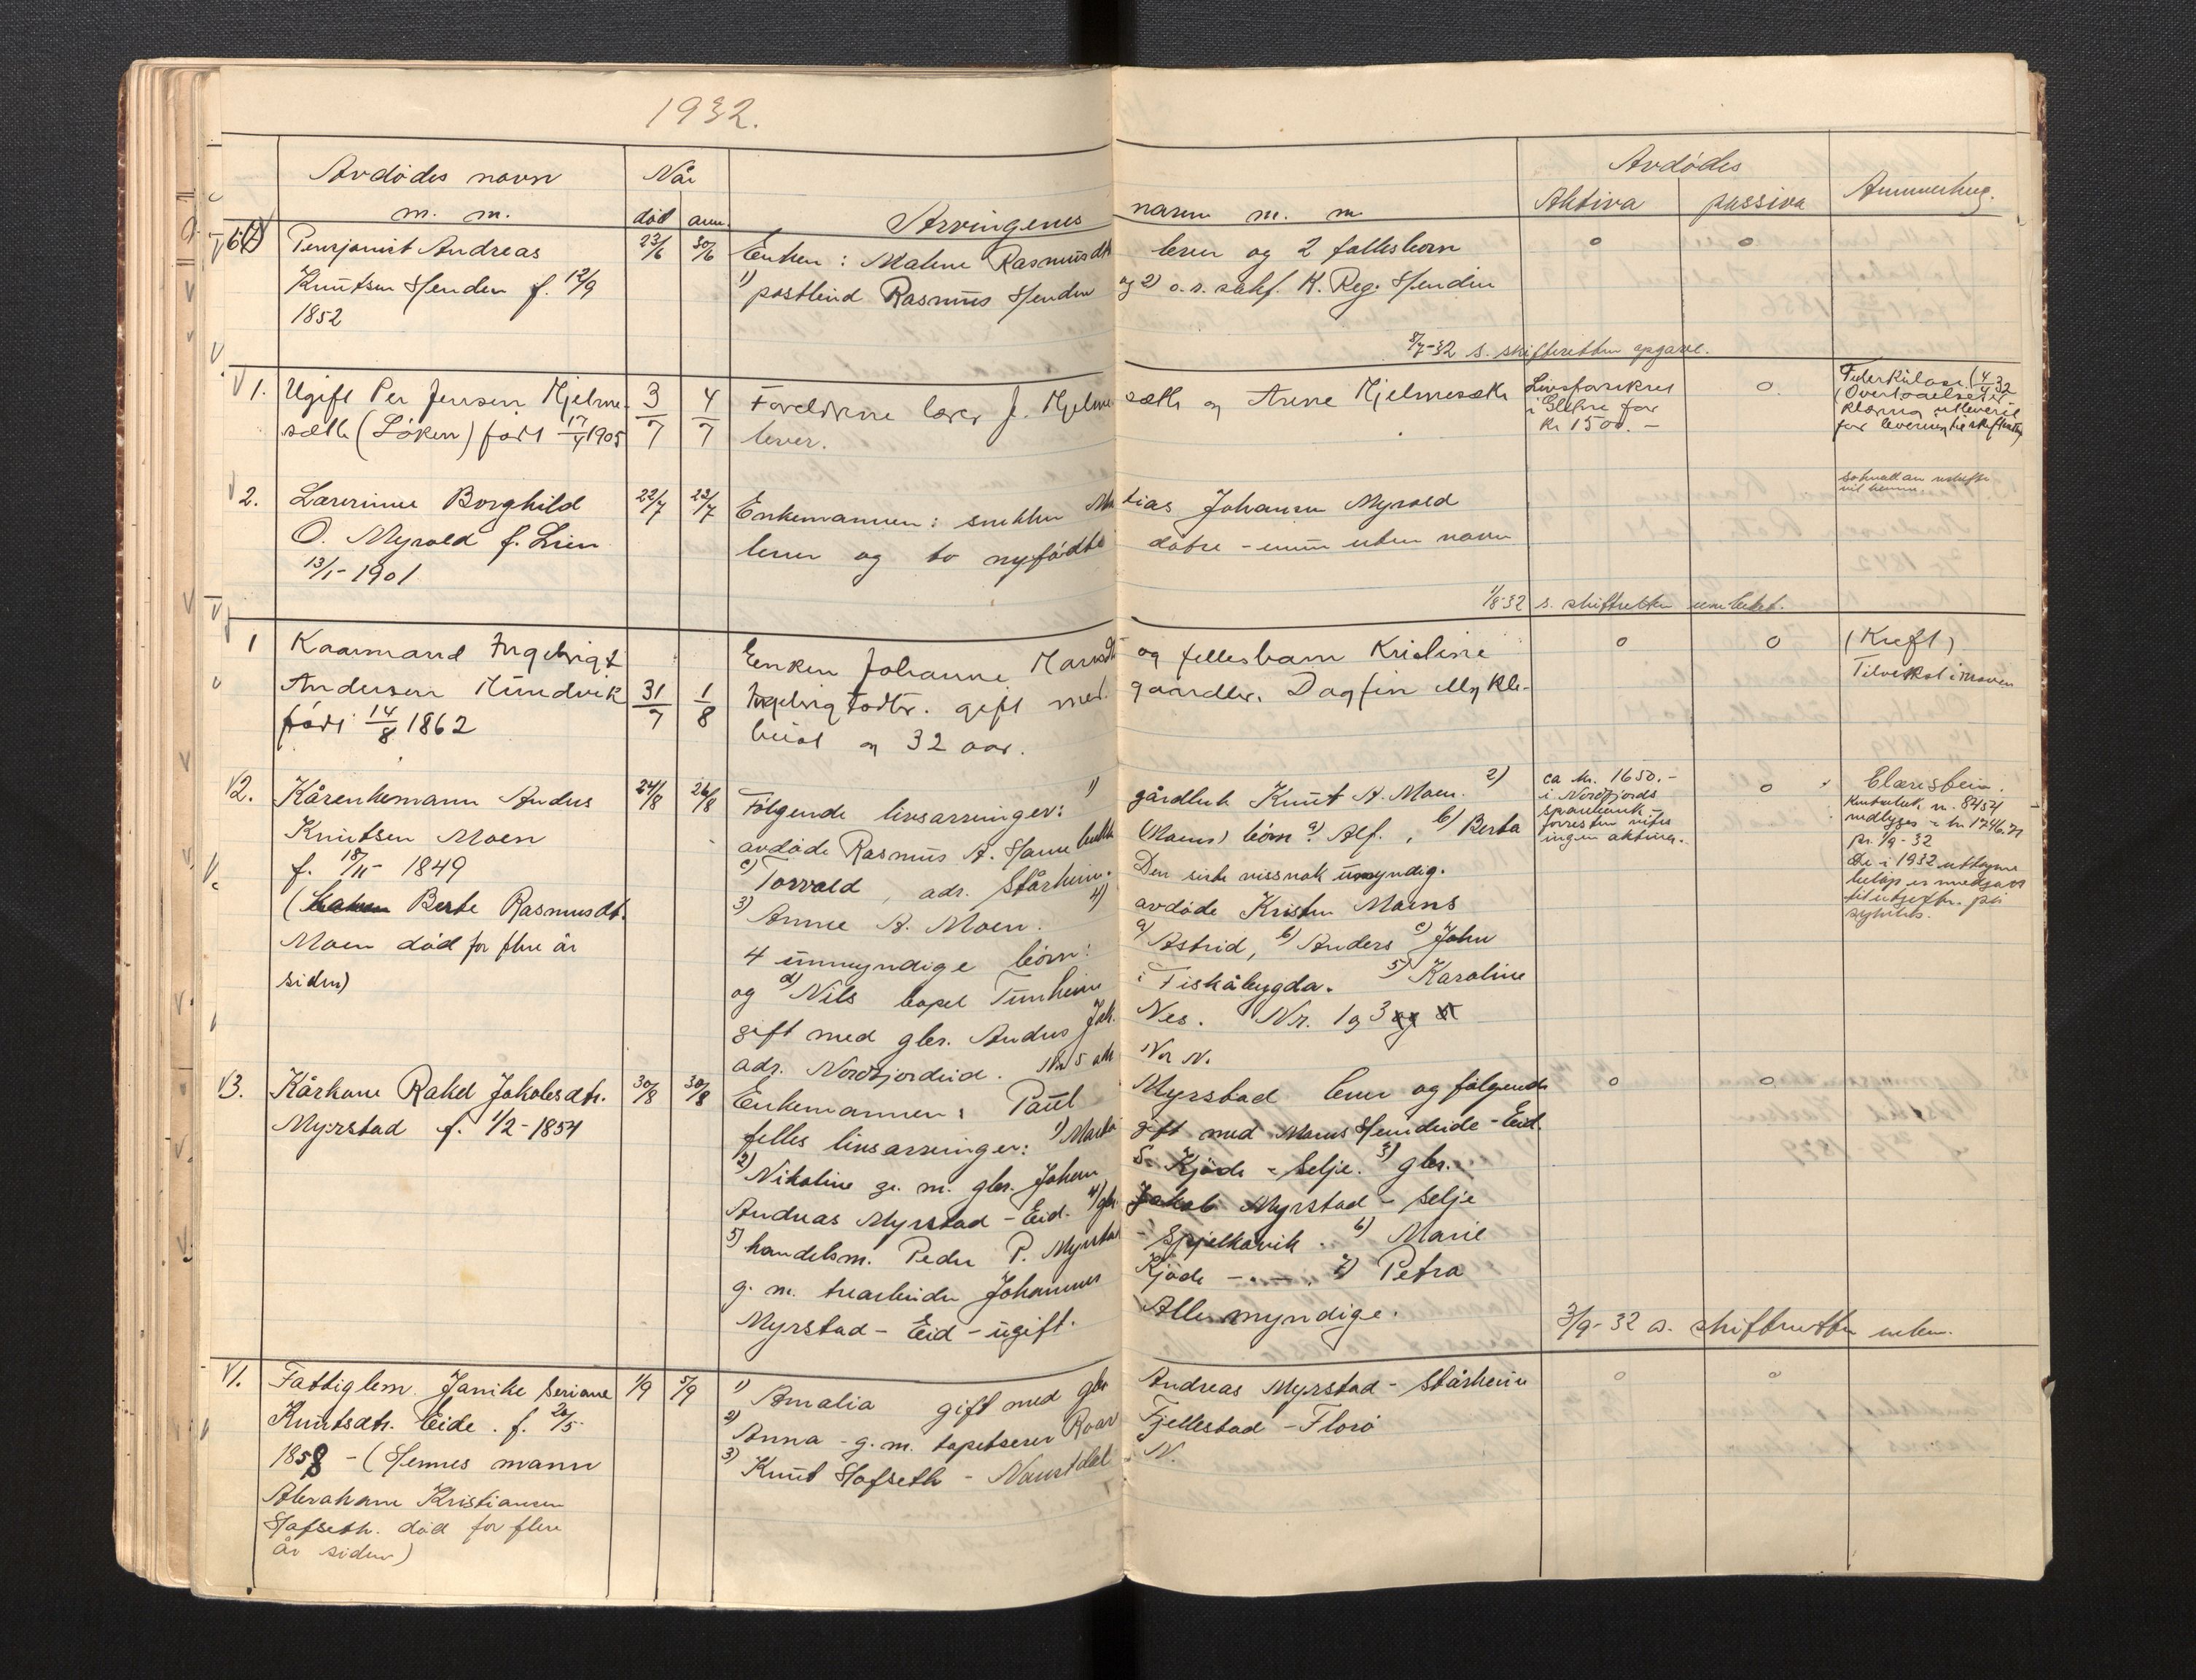 1932.
Avdødes navn
m. m.
Når
død anm.
Arvingenes navn m. m.
Avdødes
Aktiva passiva
Pensjonist Andreas
Knutsen Henden f. 12/9
1852
23/6 30/6
Enken: Malene Rasmusdtr lever og 2 fellesborn
1) postbud Rasmus Henden og 2) o.r. sakf. K. Reg. Hendin
0 0
8/7-32 s. skifteretten opgave.
1. Ugift Per Jensen Hjelme-
sæth (Løken) født 17/4 1905
3/7 4/7
Foreldrene lærer J. Hjelmesæth og Anne Hjelmesæth
lever.
Livsforsikret
i Glitne for
kr 1500.-
0
Tuberkulose (4/4 32
2. Lærerinne Borghild
O. Myrold f. Lien
13/1-1901
22/7 23/7
Enkemannen: snekker Matias Johansen Myrold
lever og to nyfødte døtre - ennu uten navn
1/8-32 s. skifteretten
1 Kaarmand Ingebrigt
Andersen Hundvik
født 14/8 1862
31/7 1/8
Enken Johanne Hansdt og fellesbarn Kristine
Ingebrigtsdtr. gift med gaardbr. Dagfin Mykle-
bust og 32 aar.
0 0
(Kreft)
Tilvekst i maven
2. Kårenkemann Anders
Knutsen Moen
f. 18/11-1849
(Berte Rasmusdt.
Moen død for flere år
siden)
24/8 26/8
Følgende livsarvinger: 1) gårdbruk Knut A. Moen. 2)
avdøde Rasmus A. børn: a) Alf., b) Berta
c) Torvald, adr. Stårheim. Den siste vissnok umyndig.
3) Anne A. Moen. 4) avdøde Kristen Moens
4 umyndige børn: a) Astrid, b) Anders c) John
og d) Nils bopel Tunheim i Fiskåbygda. 5) Karoline
gift med gbr. Anders Joh. Nes. Nr. 1 og 3
adr. Nordfjordeid. Nr 5 adr. Nor N.
ca kr. 1650.-
i Nordfjords
sparebank
forresten
ingen aktiva.
0
nr. 8454
kr 1746.71
pr. 1/9-32
De i 1932 uttagne
beløp er medgått
til utgifter på
sykehus.
3. Kårkone Rakel Jakobsdtr.
Myrstad f. 1/2-1854
30/8 30/8
Enkemannen: Paul Myrstad lever og følgende
felles livsarvinger: 1) Marta gift med Mons Hundeide - Eid.
2) Nikoline g. m. gbr. Johan S. Kjøde - Selje. 3) gbr.
Andreas Myrstad - Eid. 4) gbr. Jakob Myrstad - Selje
5) handelsm. Peder P. Myrstad - Spjelkavik. 6) Marie
g. m. trearbeider Johannes Kjøde - . - . 7) Petra
Myrstad - Eid - ugift. Alle myndige.
0 0
3/9-32 s. skifteretten
1. Fattiglem Janike Seriane
Knutsdtr. Eide. f. 20/5-
1858 - (Hennes mann
Abraham Kristiansen
Hafseth. død for flere
år siden)
1/9 5/9
1) Amalia gift med gbr Andreas Myrstad - Stårheim
2) Anna - g. m. tapetserer Roar Fjellestad - Florø
3) Knut Hafseth - Naustdal N.
0 0